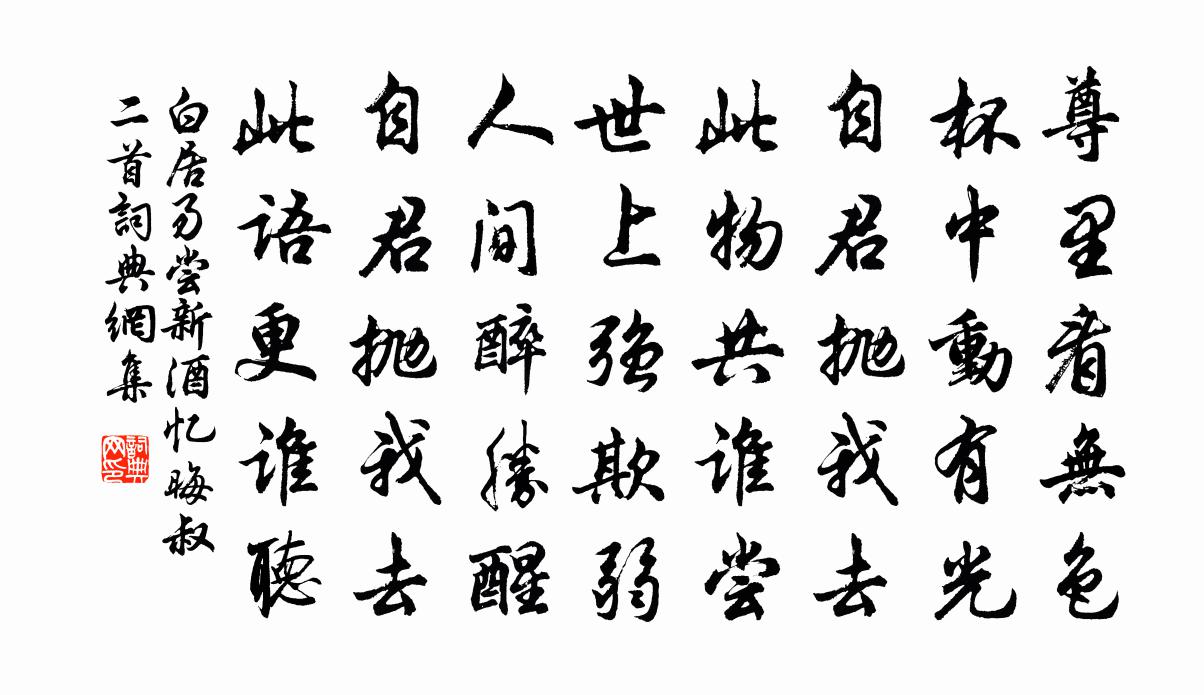 尊里看無色
杯中動有光
自君抛我去
此物共谁尝
世上强欺弱
人间醉勝醒
自君抛我去
此語更谁聴
白居易尝新酒忆晦叔
二首詞典網集
詞典
网印